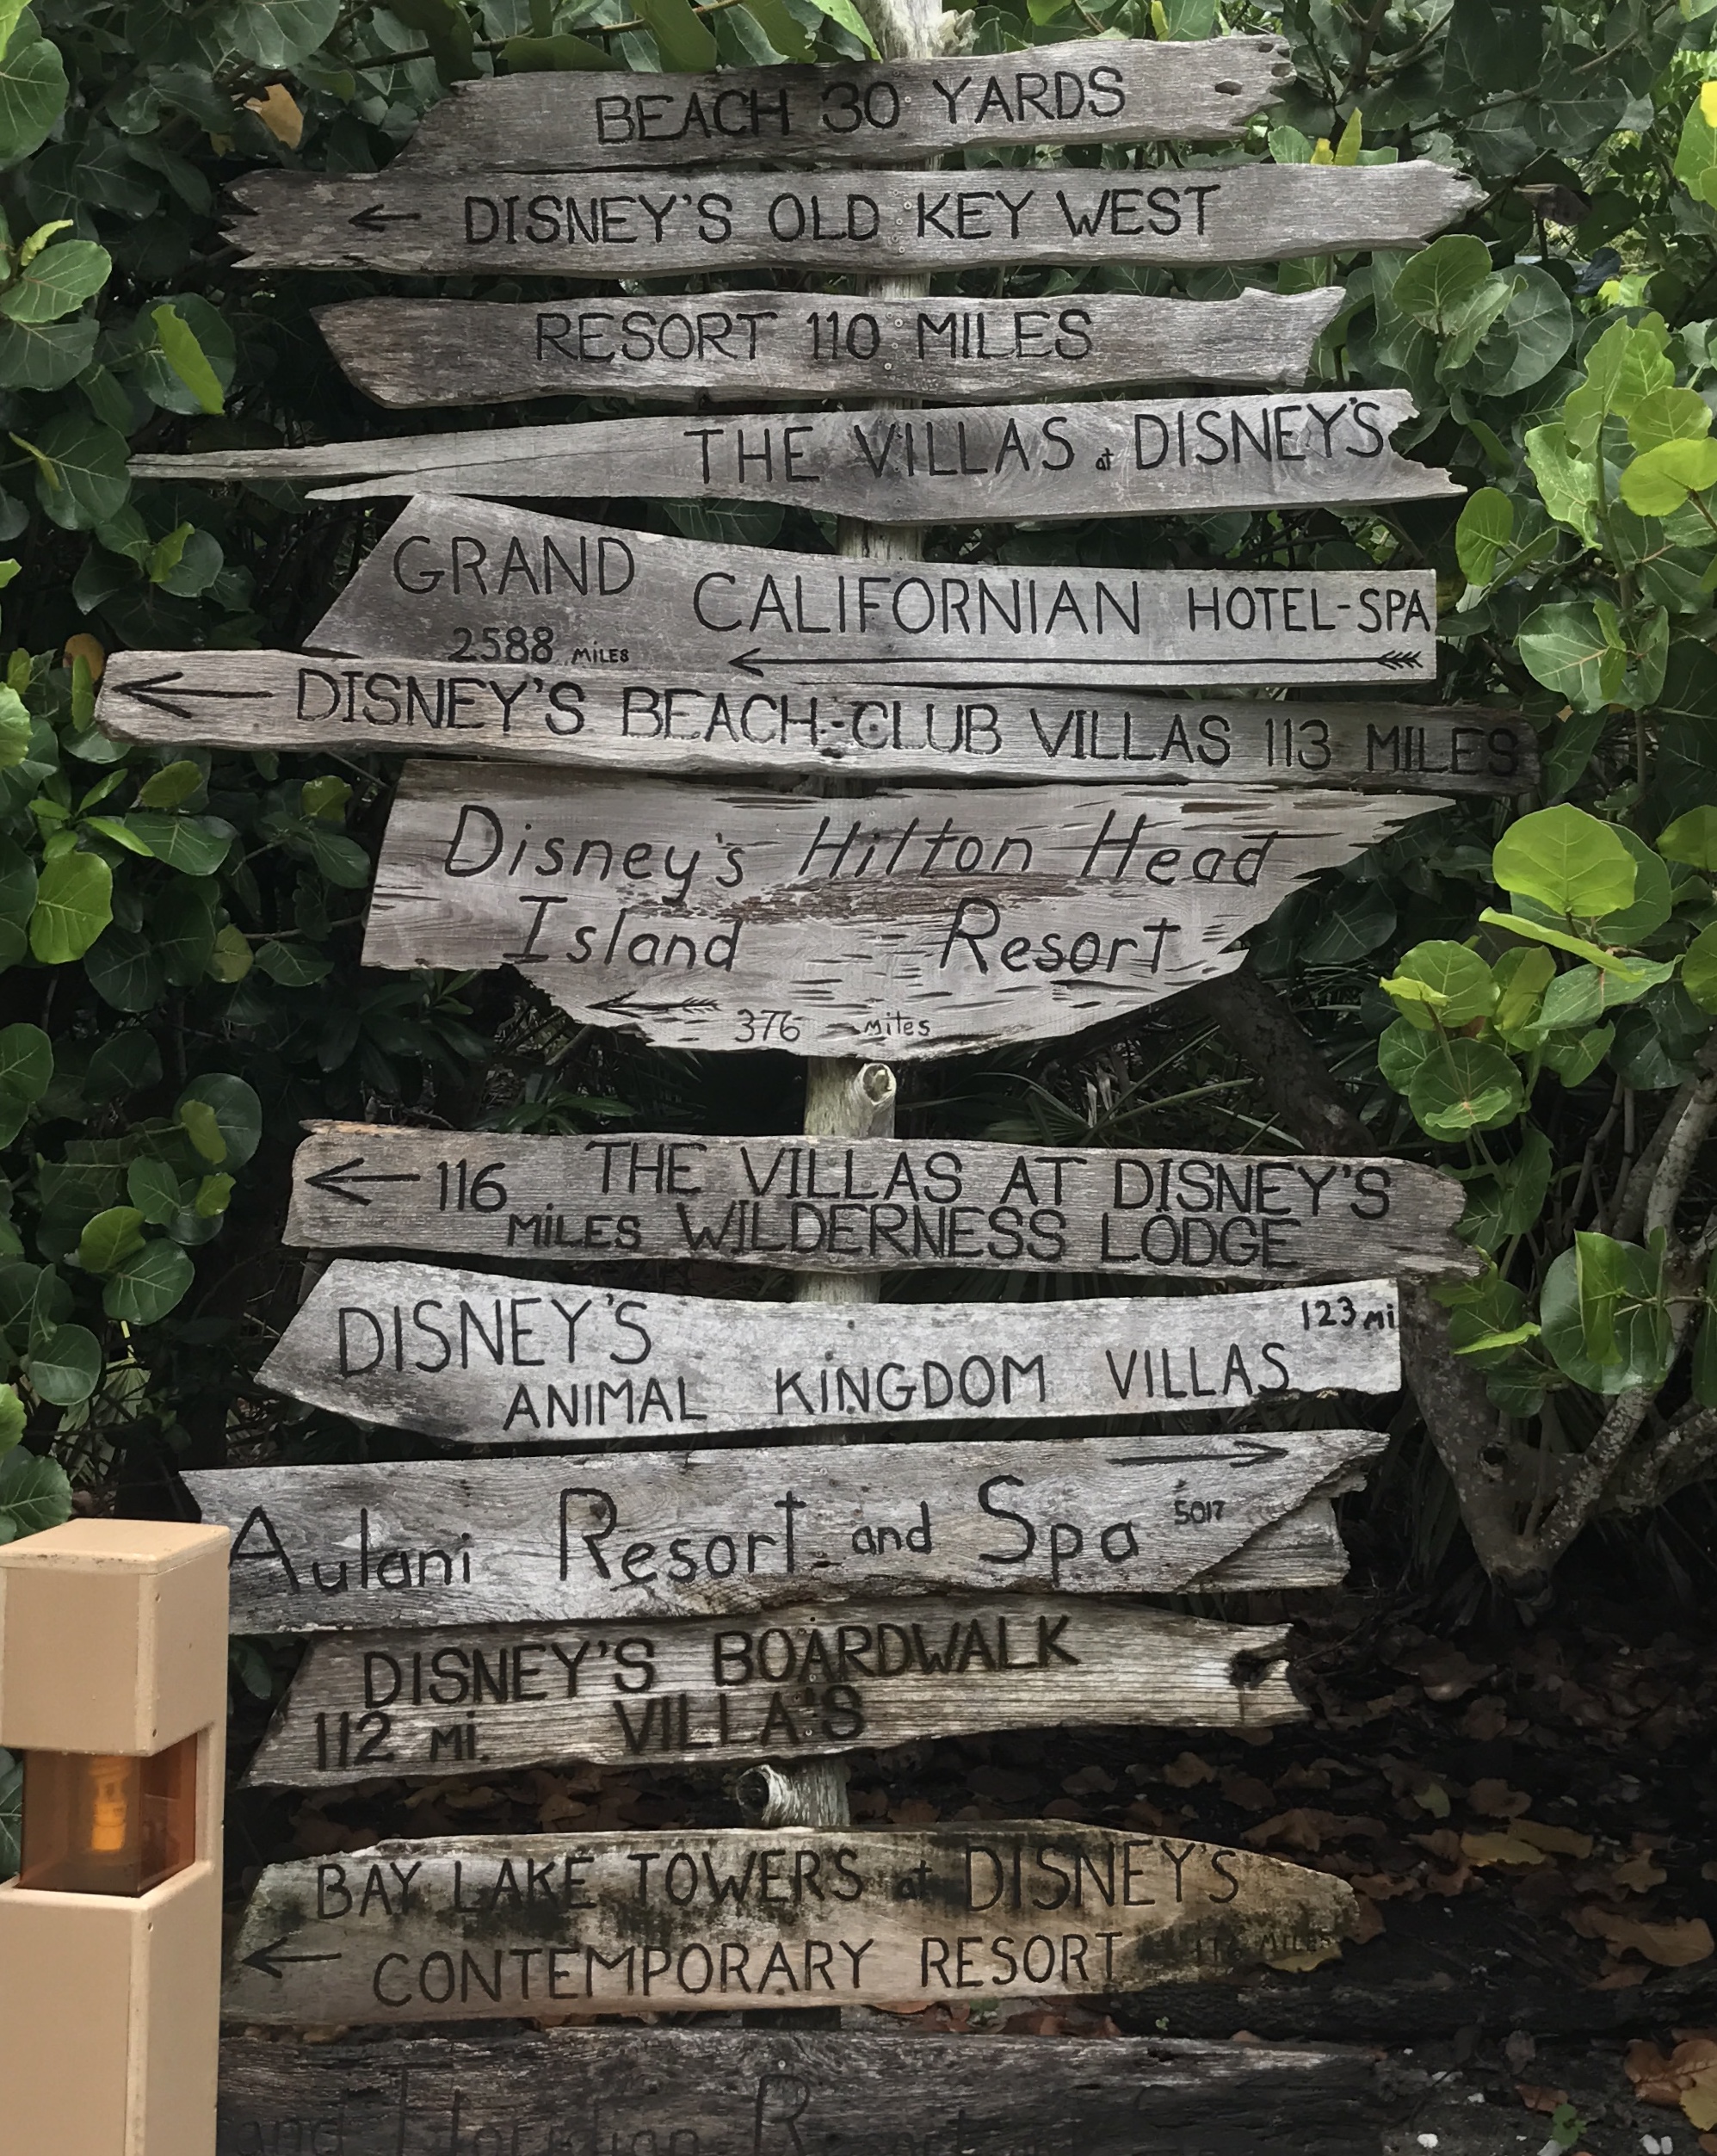 BEACH 30 YARDS
← DISNEY'S OLD KEY WEST
RESORT 110 MILES
THE VILLAS at DISNEY'S
GRAND CALIFORNIAN HOTEL-SPA
2588 MILES ←
← DISNEY'S BEACH-CLUB VILLAS 113 MILES
Disney's Hilton Head
Island Resort
← 376 miles
← 116 THE VILLAS AT DISNEY'S
MILES WILDERNESS LODGE
123 Mi
DISNEY'S
ANIMAL KINGDOM VILLAS
→
Aulani Resort and Spa 5017
DISNEY'S BOARDWALK
112 Mi. VILLA'S
BAY LAKE TOWERS at DISNEY'S
← CONTEMPORARY RESORT MILES
and Floridian